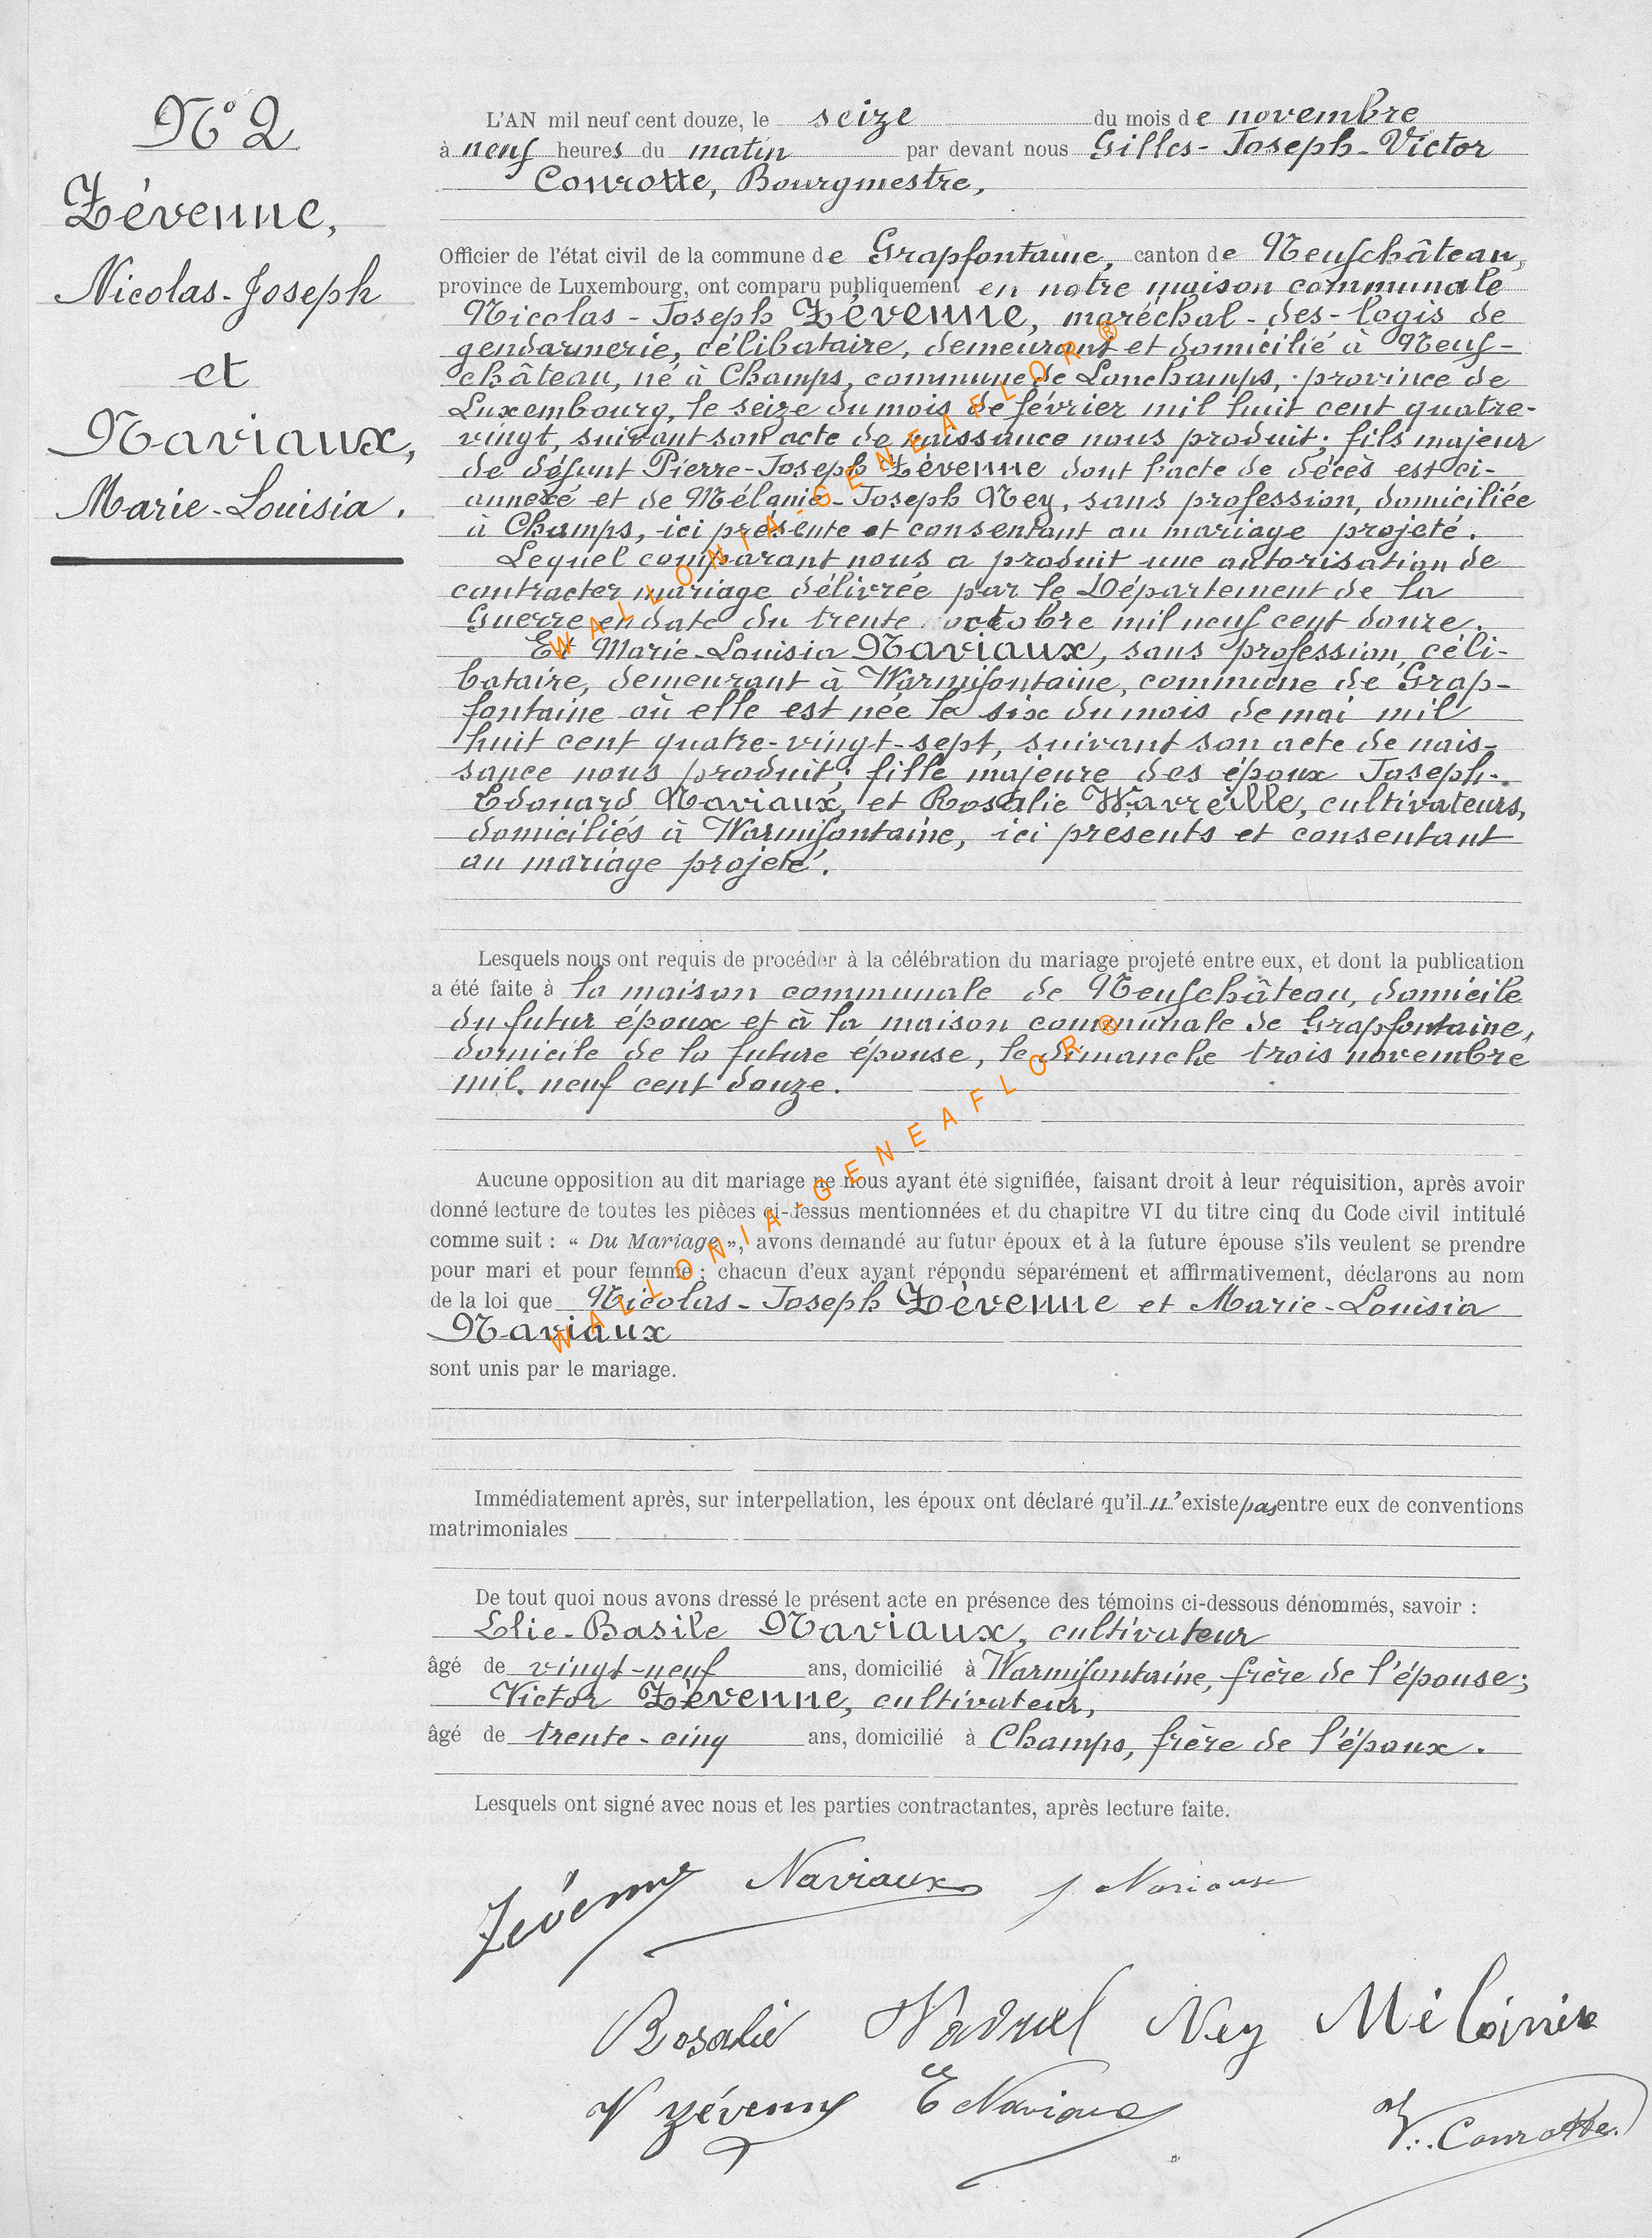 N° 2
Zévenne,
Nicolas-Joseph
et
Naviaux,
Marie-Louisia.
L'AN mil neuf cent douze, le seize du mois de novembre
à neuf heures du matin par devant nous Gilles-Joseph-Victor
Conrotte, Bourgmestre,
Officier de l'état civil de la commune de Grapfontaine, canton de Neufchâteau,
province de Luxembourg, ont comparu publiquement en notre maison communale
Nicolas-Joseph Zévenne, maréchal-des-logis de
gendarmerie, célibataire, demeurant et domicilié à Neuf-
château, né à Champs, commune de Lonchamps, province de
Luxembourg, le seize du mois de février mil huit cent quatre-
vingt, suivant son acte de naissance nous produit; fils majeur
de défunt Pierre-Joseph Zévenne dont l'acte de décès est ci-
annexé et de Mélanie-Joseph Ney, sans profession, domiciliée
à Champs, ici présente et consentant au mariage projeté.
Lequel comparant nous a produit une autorisation de
contracter mariage délivrée par le Département de la
Guerre en date du trente octobre mil neuf cent douze.
Et Marie-Louisia Naviaux, sans profession, céli-
bataire, demeurant à Warmifontaine, commune de Grap-
fontaine où elle est née le six du mois de mai mil
huit cent quatre-vingt-sept, suivant son acte de nais-
sance nous produit; fille majeure des époux Joseph-
Edouard Naviaux, et Rosalie Wavreille, cultivateurs,
domiciliés à Warmifontaine, ici présents et consentant
au mariage projeté.
Lesquels nous ont requis de procéder à la célébration du mariage projeté entre eux, et dont la publication
a été faite à la maison communale de Neufchâteau, domicile
du futur époux et à la maison communale de Grapfontaine,
domicile de la future épouse, le dimanche trois novembre
mil neuf cent douze.
Aucune opposition au dit mariage ne nous ayant été signifiée, faisant droit à leur réquisition, après avoir
donné lecture de toutes les pièces ci-dessus mentionnées et du chapitre VI du titre cinq du Code civil intitulé
comme suit : « Du Mariage », avons demandé au futur époux et à la future épouse s'ils veulent se prendre
pour mari et pour femme ; chacun d'eux ayant répondu séparément et affirmativement, déclarons au nom
de la loi que Nicolas-Joseph Zévenne et Marie-Louisia
Naviaux
sont unis par le mariage.
Immédiatement après, sur interpellation, les époux ont déclaré qu'il n'existe pas entre eux de conventions
matrimoniales
De tout quoi nous avons dressé le présent acte en présence des témoins ci-dessous dénommés, savoir :
Elie-Basile Naviaux, cultivateur
âgé de vingt-neuf ans, domicilié à Warmifontaine, frère de l'épouse;
Victor Zévenne, cultivateur,
âgé de trente-cinq ans, domicilié à Champs, frère de l'époux.
Lesquels ont signé avec nous et les parties contractantes, après lecture faite.
Zévenne Naviaux J Naviaux
Rosalie Ney
V Zévenne E Naviaux V. Conrotte
WALLONIA-GENEAFLOR®
WALLONIA-GENEAFLOR®